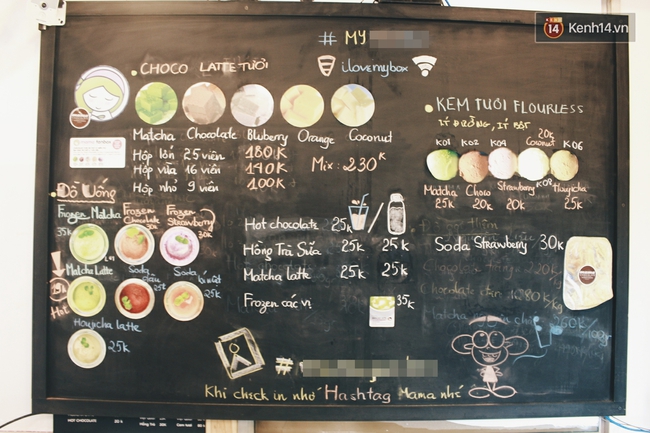 14 Kenh14.vn
# MY
CHOCO LATTE TƯƠI
ilovemybox
Matcha Chocolate Bluberry Orange Coconut
Hộp lớn 25 viên 180K
Hộp vừa 16 viên 140K
Hộp nhỏ 9 viên 100K
Mix: 230K
KEM TƯƠI FLOURLESS
ÍT ĐƯỜNG, ÍT BÉO
K01 K02 K04 20k Coconut K06
Matcha 25k
Choco 20k
Strawberry 20k
K08
Houjicha 25k
Đồ Uống
Frozen Matcha 35k
Frozen Chocolate 30k
Frozen Strawberry 30k
Matcha Latte
Soda dâu 25k
Soda 25k
Houjicha latte 25k
Hot chocolate 25k
Hồng Trà Sữa 25k 25k
Matcha latte 25k 25k
Frozen các vị 35k
Soda Strawberry 30K
#
Khi check in nhớ Hashtag Mama nhé